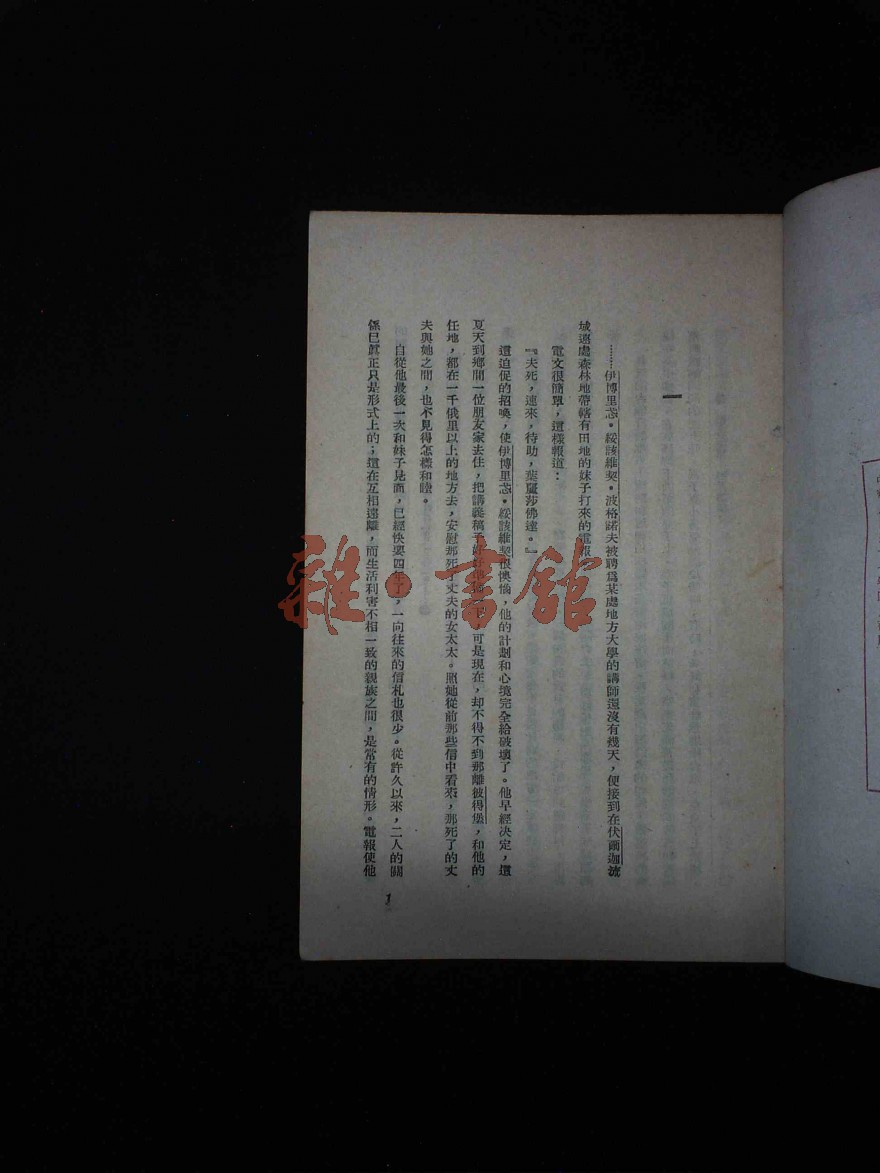 一
……伊博里忒·綏該維契·波格諾夫被聘爲某處地方大學的講師還沒有幾天，便接到在伏爾迦流
域遼處森林地帶轄有田地的妹子打來的電報。
電文很簡單，這樣報道：
『夫死，速來，待助，葉麗莎佛達。』
這迫促的招喚，使伊博里忒·綏該維契很懊惱，他的計劃和心境完全給破壞了。他早經決定，這
夏天到鄉間一位朋友家去住，把講義稿子好好地 一下，可是現在，却不得不到那離彼得堡，和他的
任地，都在一千俄里以上的地方去，安慰那死了丈夫的女太太。照她從前那些信中看來，那死了的丈
夫與她之間，也不見得怎樣和睦。
自從他最後一次和妹子見面，已經快要四年了，一向往來的信札也很少。從許久以來，二人的關
係已眞正只是形式上的；這在互相遠離，而生活利害不相一致的親族之間，是常有的情形。電報使他
1
雜·書館